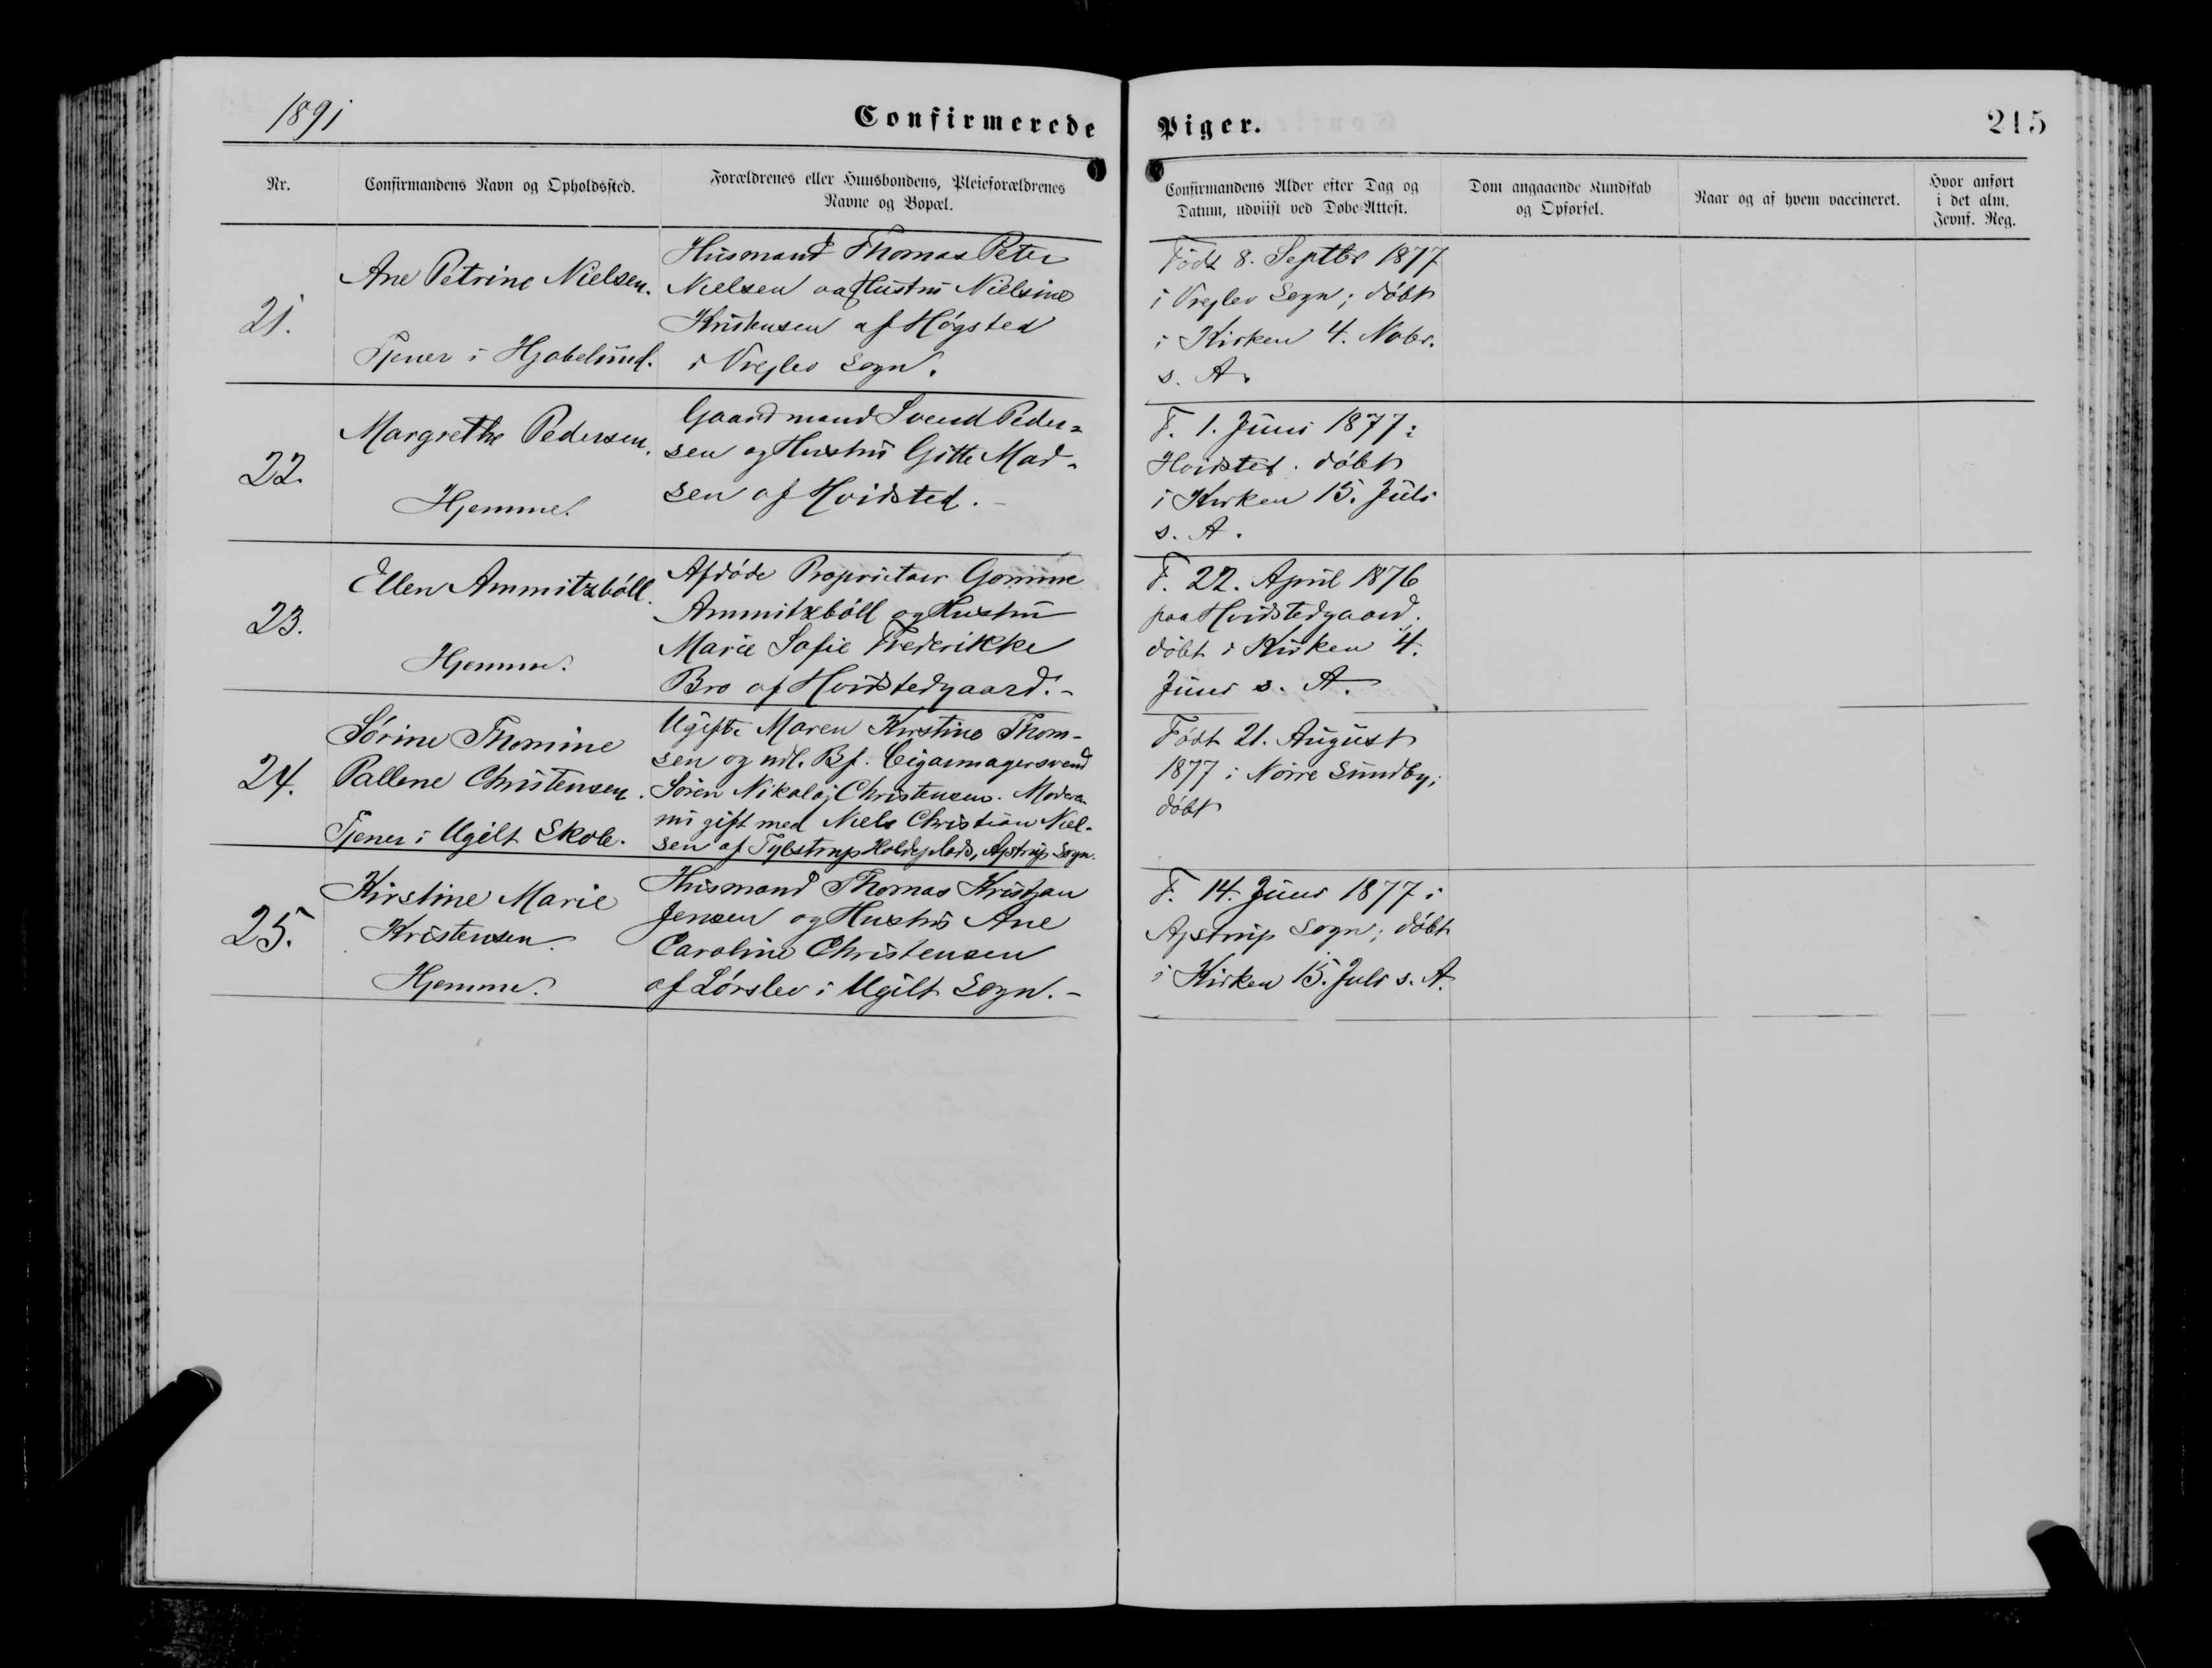 1891
Confirmerede Piger.
215
Nr.
Confirmandens Navn og Opholdssted.
Forældrenes eller Huusbondens, Pleieforældrenes
Navne og Bopæl.
Confirmandens Alder efter Dag og
Datum, udviist ved Døbe-Attest.
Dom angaaende Kundskab
og Opførsel.
Naar og af hvem vaccineret.
Hvor anført
i det alm.
Jevnf. Reg.
21.
Ane Petrine Nielsen.
Tjener i Hjabelund.
Husmand Thomas Peter
Nielsen og Hustru Nielsine
Kristensen af Høgsted
i Vrejlev Sogn.
Født 8. Septbr 1877
i Vrejlev Sogn; døbt
i Kirken 4. Nobr.
s. A.
22.
Margrethe Pedersen.
Hjemme.
Gaardmand Svend Peder-
sen og Hustru Gitte Mad-
sen af Hvidsted.-
F. 1. Juni 1877 i
Hvidsted. døbt
i Kirken 15. Juli
s. A.
23.
Ellen Ammitzbøll.
Hjemme.
Afdøde Proprietær Gomme
Ammitzbøll og Hustru
Marie Sofie Frederikke
Bro af Hvidstedgaard.-
F. 22. April 1876
paa Hvidstedgaard,
døbt i Kirken 4.
Juni s. A.
24.
Sørine Thomine
Pallene Christensen.
Tjener i Ugilt Skole.
Ugifte Maren Kirstine Thom-
sen og udl. Bf. Cigarmagersvend
Søren Nikolaj Christensen. Moderen
nu gift med Niels Christian Niel-
sen af Tylstrup Holdeplads, Ajstrup Sogn.
Født 21. August
1877 i Nørre Sundby;
døbt
25.
Kirstine Marie
Kristensen.
Hjemme.
Husmand Thomas Kristjan
Jensen og Hustru Ane
Caroline Christensen
af Lørslev i Ugilt Sogn.-
F. 14. Juni 1877 i
Ajstrup Sogn; døbt
i Kirken 15. Juli s. A.